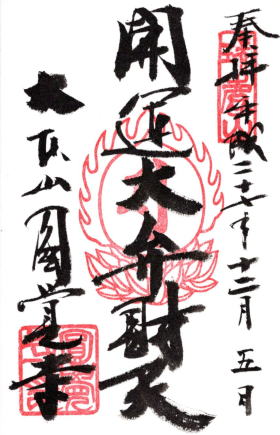 奉拝 平成二十七年十二月五日
開運大弁財天
大本山圓覚寺